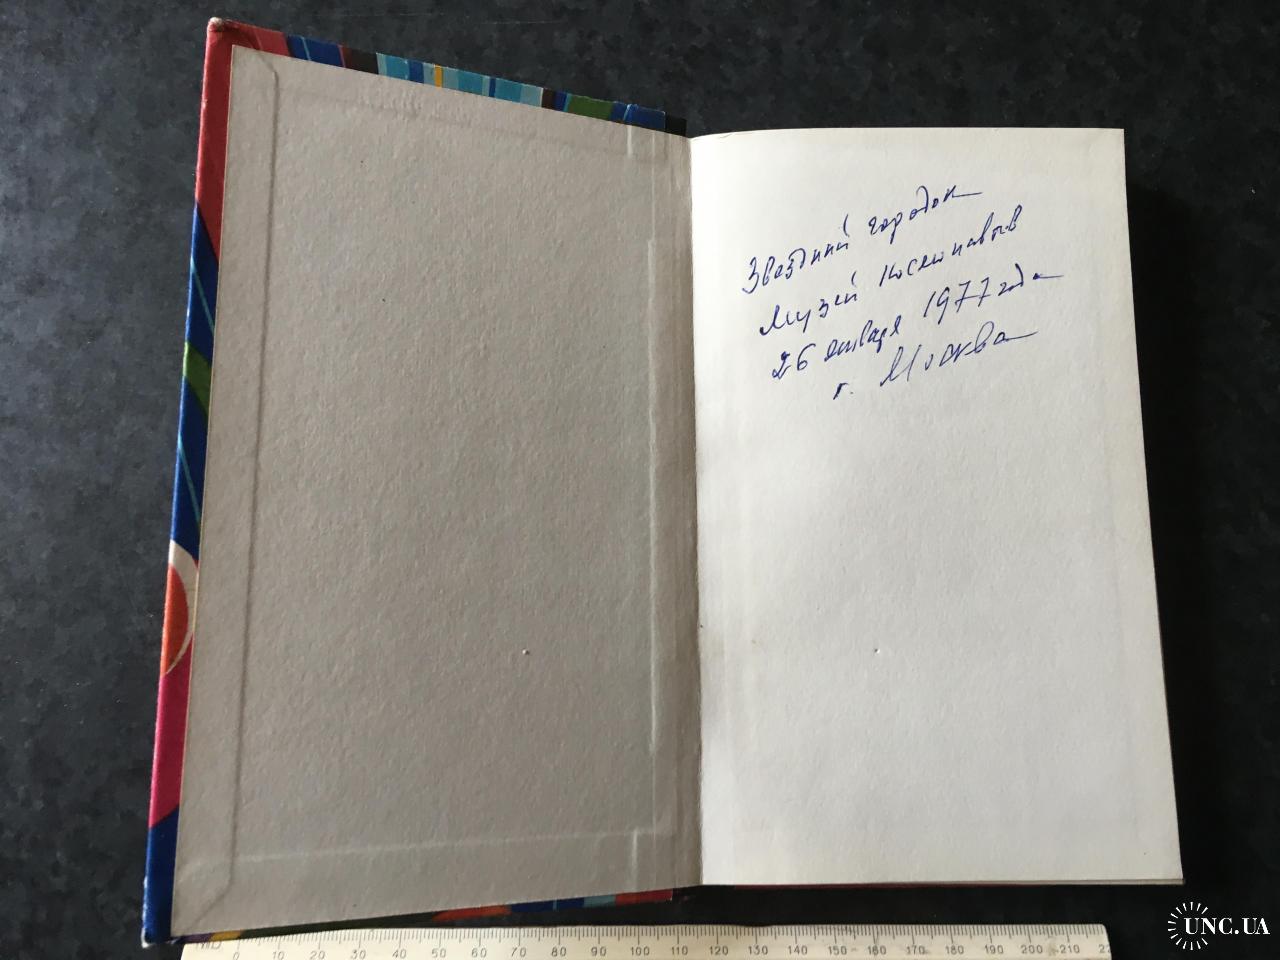 Звездный городок
Музей космонавтов
26 января 1977 года
г. Москва
0 10 20 30 40 50 60 70 80 90 100 110 120 130 140 150 160 170 180 190 200 210
UNC.UA